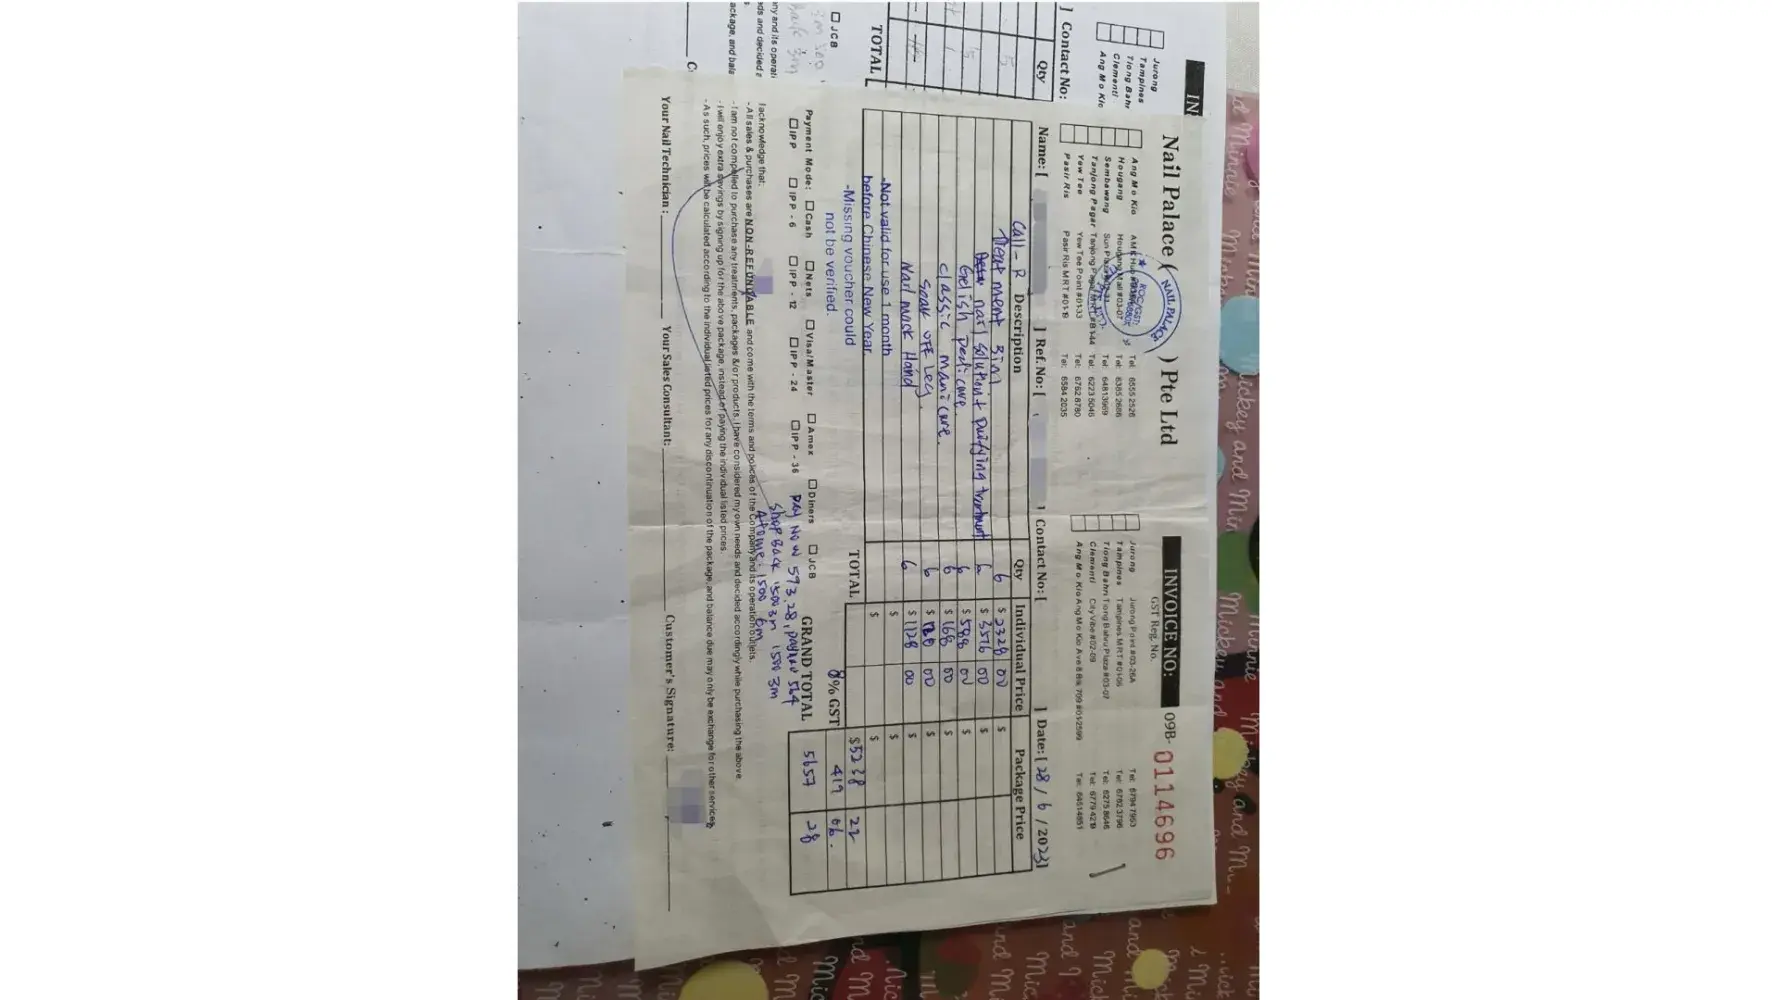 Nail Palace ( ) Pte Ltd
NAIL PALACE
ROC/GST:
INVOICE NO: 09B- 0114696
GST Reg. No.
Ang Mo Kio
Hougang Hougang Mall #03-07 Tel: 6385 2686
Sembawang Sun Plaza Tel: 6481 3969
Tanjong Pagar Tel: 6223 5046
Yew Tee Yew Tee Point #01-33 Tel: 6762 8780
Pasir Ris Pasir Ris MRT #01-19 Tel: 6584 2035
Jurong Jurong Point #03-26A Tel: 6794 7953
Tampines Tampines MRT #01-06 Tel: 6782 3796
Tiong Bahru Tiong Bahru Plaza #03-07 Tel: 6275 8646
Clementi CityVibe #02-09 Tel: 6779 4219
Ang Mo Kio Ang Mo Kio Ave 8 Blk 709 #01-2599 Tel: 6451 4851
Name: [ ] Ref. No: [ ] Contact No: [ ] Date: [ 28 / 6 / 2023 ]
Description Qty Individual Price Package Price
Call - R
Treatment 3in1 6 $ 2328 00 $
nail solution + purifying treatment 6 $ 3576 00 $
Gelish Pedicure 6 $ 588 00 $
classic manicure. 6 $ 168 00 $
soak off Leg. 6 $ 120 00 $
Nail mask Hand 6 $ 1128 00 $
$ $
-Not valid for use 1 month
before Chinese New Year.
$ $
-Missing voucher could
not be verified.
TOTAL $5238 22
8% GST 419 06.
GRAND TOTAL 5657 28
Payment Mode: Cash Nets Visa/Master Amex Diners JCB
IPP IPP - 6 IPP - 12 IPP - 24 IPP - 36
Pay Now 593.28, paynow 564
Shop Back 1500 3m 1500 3m
Atome : 1500 6m
I acknowledge that:
- All sales & purchases are NON-REFUNDABLE and come with the terms and policies of the Company and its operation outlets.
- I am not compelled to purchase any treatments, packages &/or products. I have considered my own needs and decided accordingly while purchasing the above.
- I will enjoy extra savings by signing up for the above package, instead of paying the individual listed prices.
- As such, prices will be calculated according to the individual listed prices for any discontinuation of the package, and balance due may only be exchange for other services
Your Nail Technician : Your Sales Consultant: Customer's Signature:
IN
Jurong
Tampines
Tiong Bahr
Clementi
Ang Mo Kio
] Contact No:
Qty
TOTAL
JCB
ny and its operati
ds and decided a
ackage, and bala
C
Mickey and Minnie